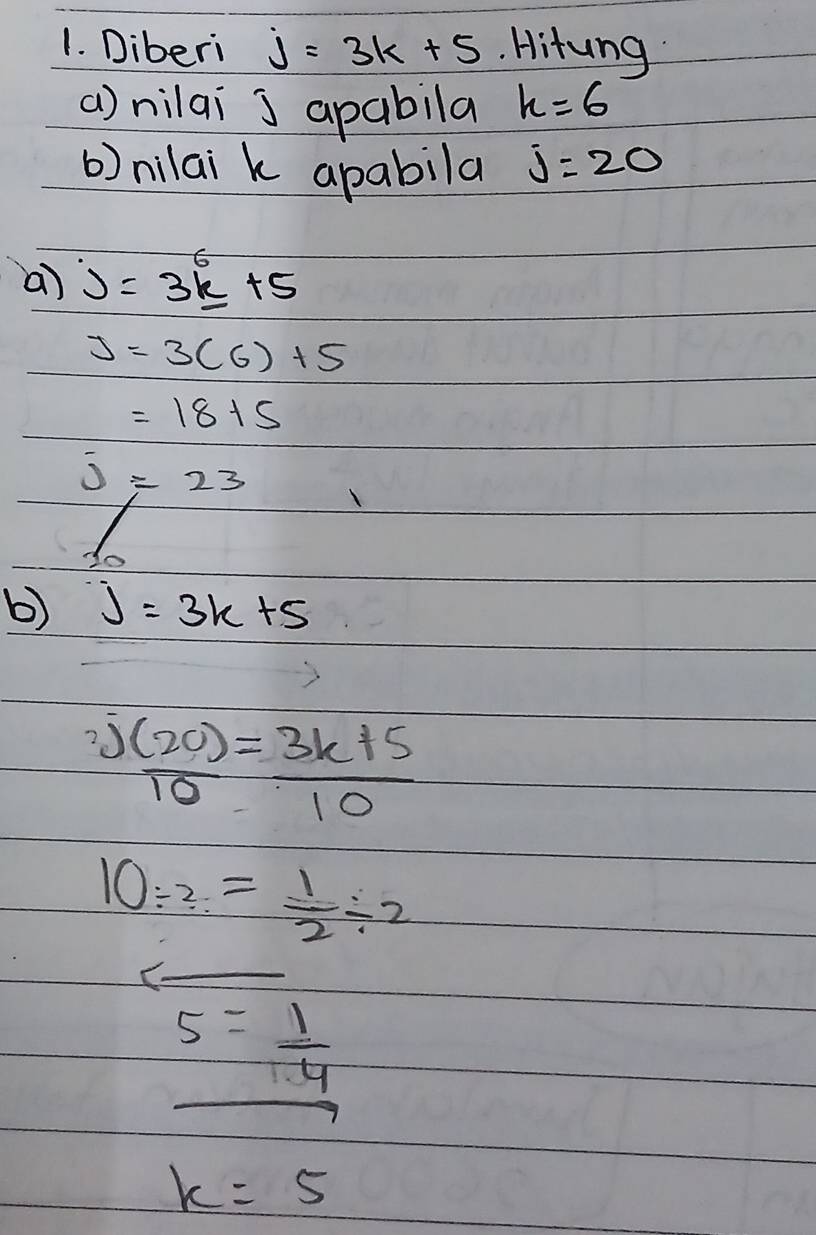 1. Diberi j = 3k + 5. Hitung
a) nilai j apabila k = 6
b) nilai k apabila j = 20
6
a) j = 3k + 5
j = 3(6) + 5
= 18 + 5
j = 23
20
b) j = 3k + 5
j(20) = 3k + 5
10 10
10 ÷ 2 = 1/2 ÷ 2
5 = 1/4
k = 5